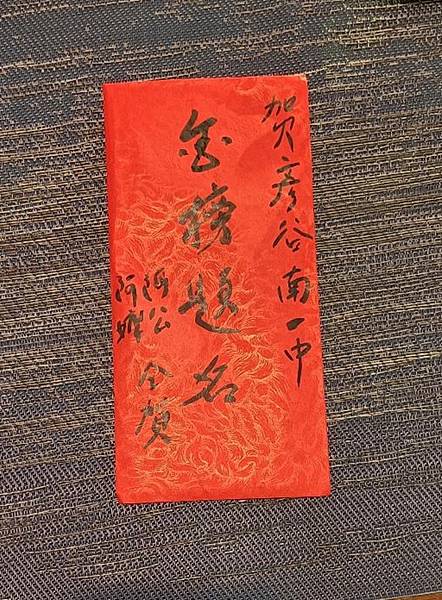 賀彥谷南一中
金榜題名
阿公
阿嬤
仝賀